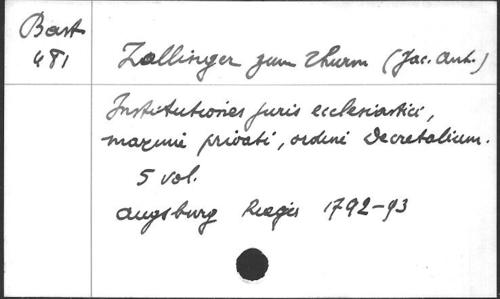 Bast
481
Zallinger zum Thurm (Jac. Ant.)
Institutiones juris ecclesiastici,
maxime privati, ordine Decretalium.
5 vol.
Augsburg Rieger 1792-93